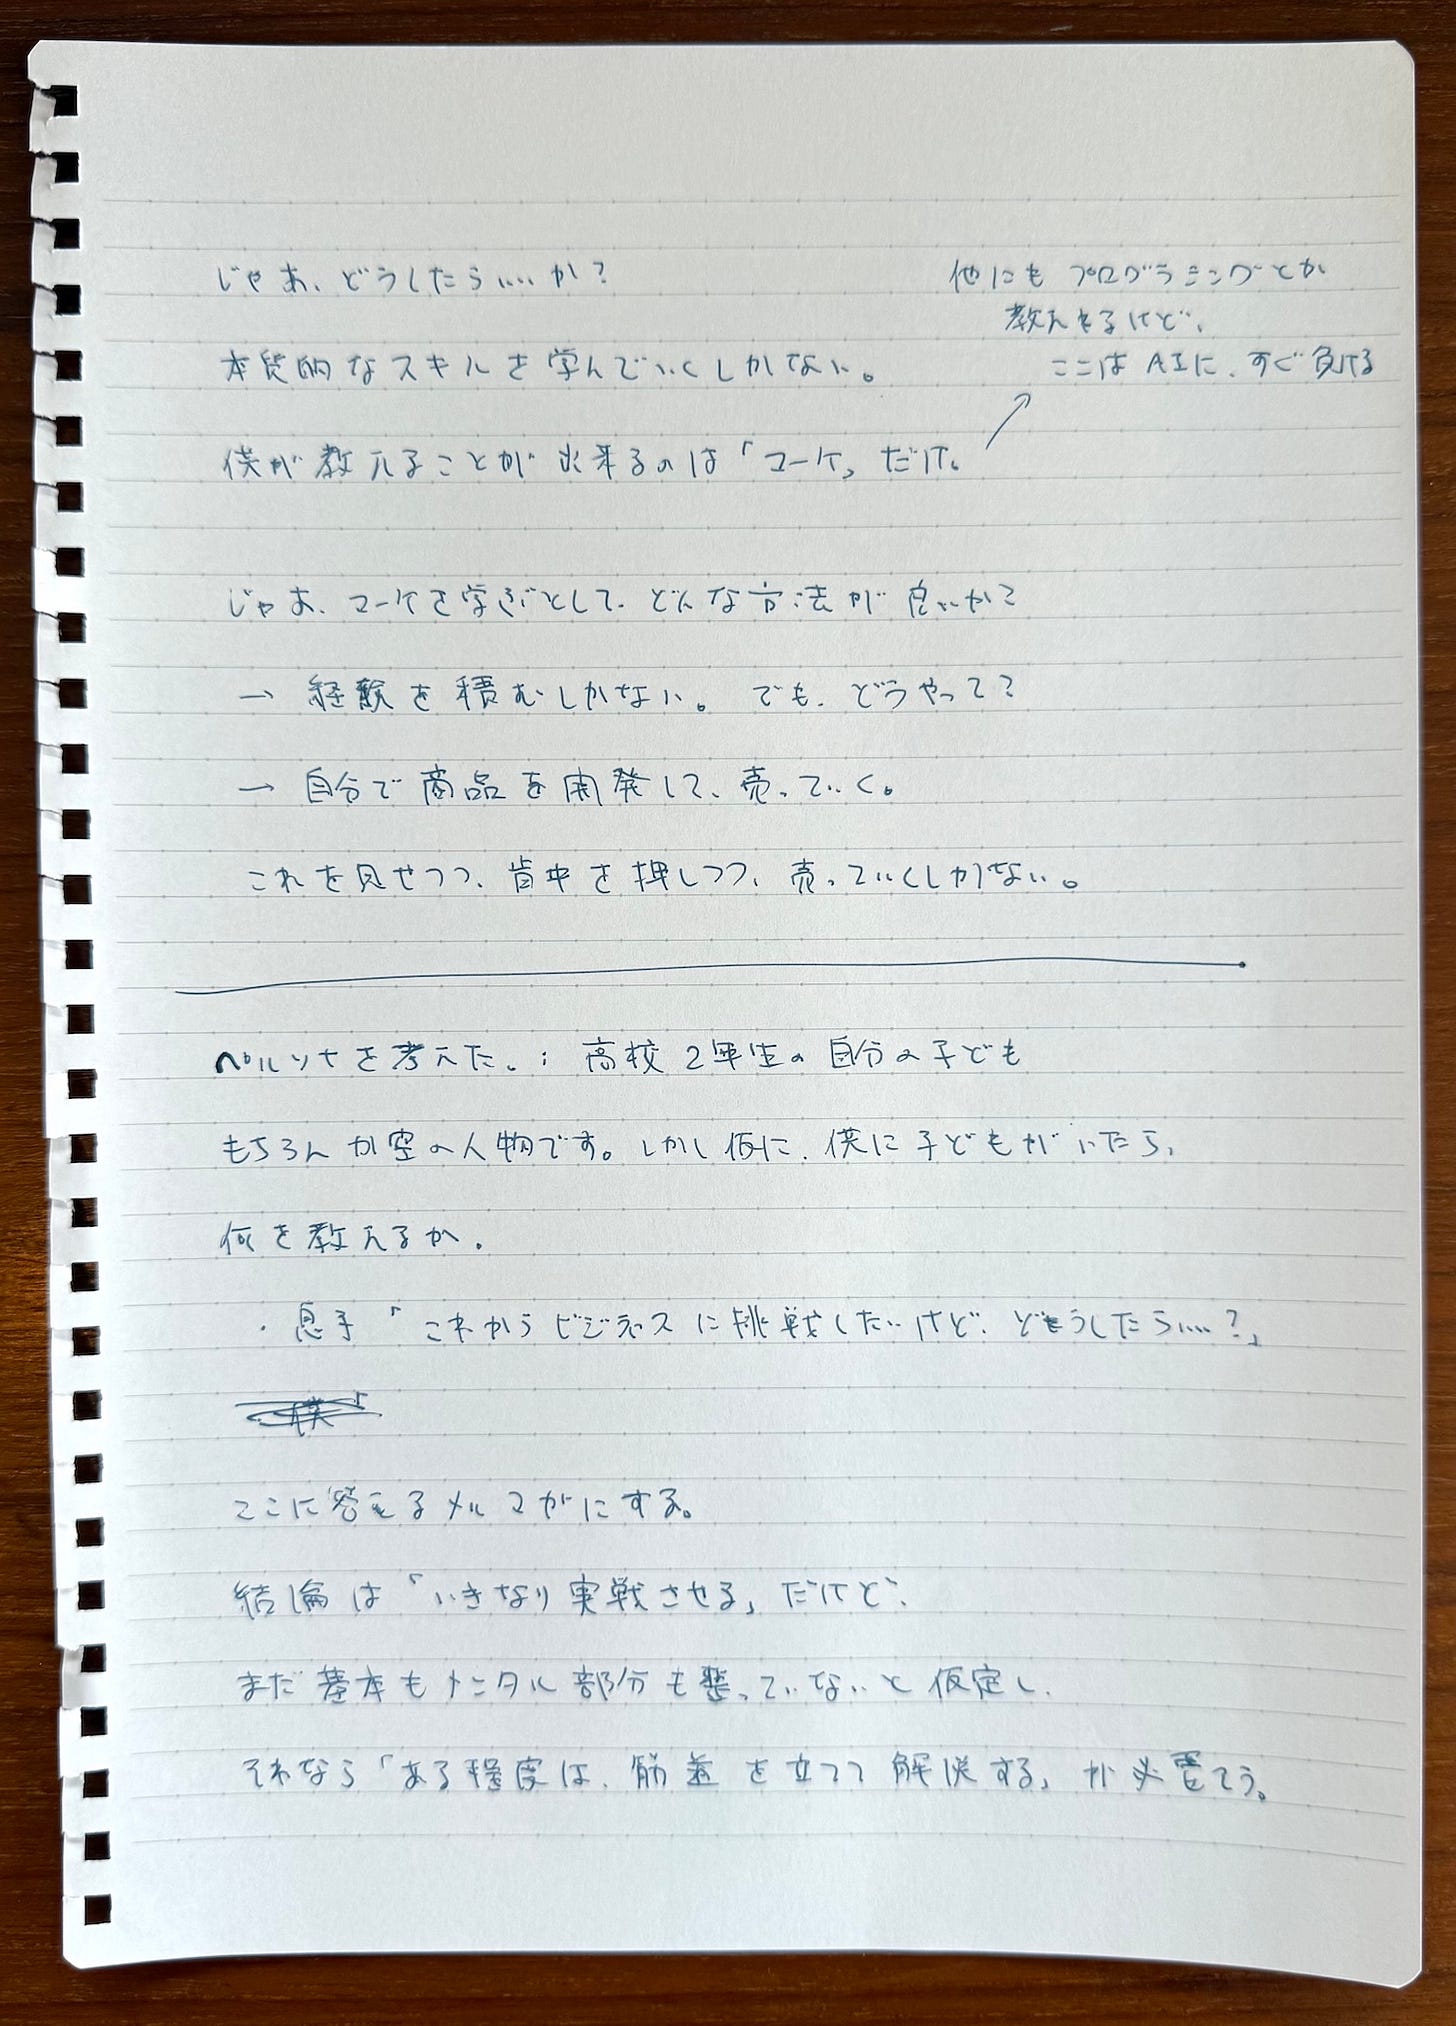 じゃあ、どうしたらいいか？
本質的なスキルを学んでいくしかない。
僕が教えることが出来るのは「マーケ」だけ。
他にもプログラミングとか
教えれるけど、
ここはAIに、すぐ負ける
じゃあ、マーケを学ぶとして、どんな方法が良いか？
→ 経験を積むしかない。でも、どうやって？
→ 自分で商品を開発して、売っていく。
これを見せつつ、背中を押しつつ、売っていくしかない。
ペルソナを考えた。：高校2年生の自分の子ども
もちろん架空の人物です。しかし仮に、僕に子どもがいたら、
何を教えるか。
・息子「これからビジネスに挑戦したいけど、どうしたらいい？」
僕「
ここに答えるメルマガにする。
結論は「いきなり実戦させる」だけど、
まだ基本もメンタル部分も整っていないと仮定し、
それなら「ある程度は、筋道を立てて解説する」が必要そう。